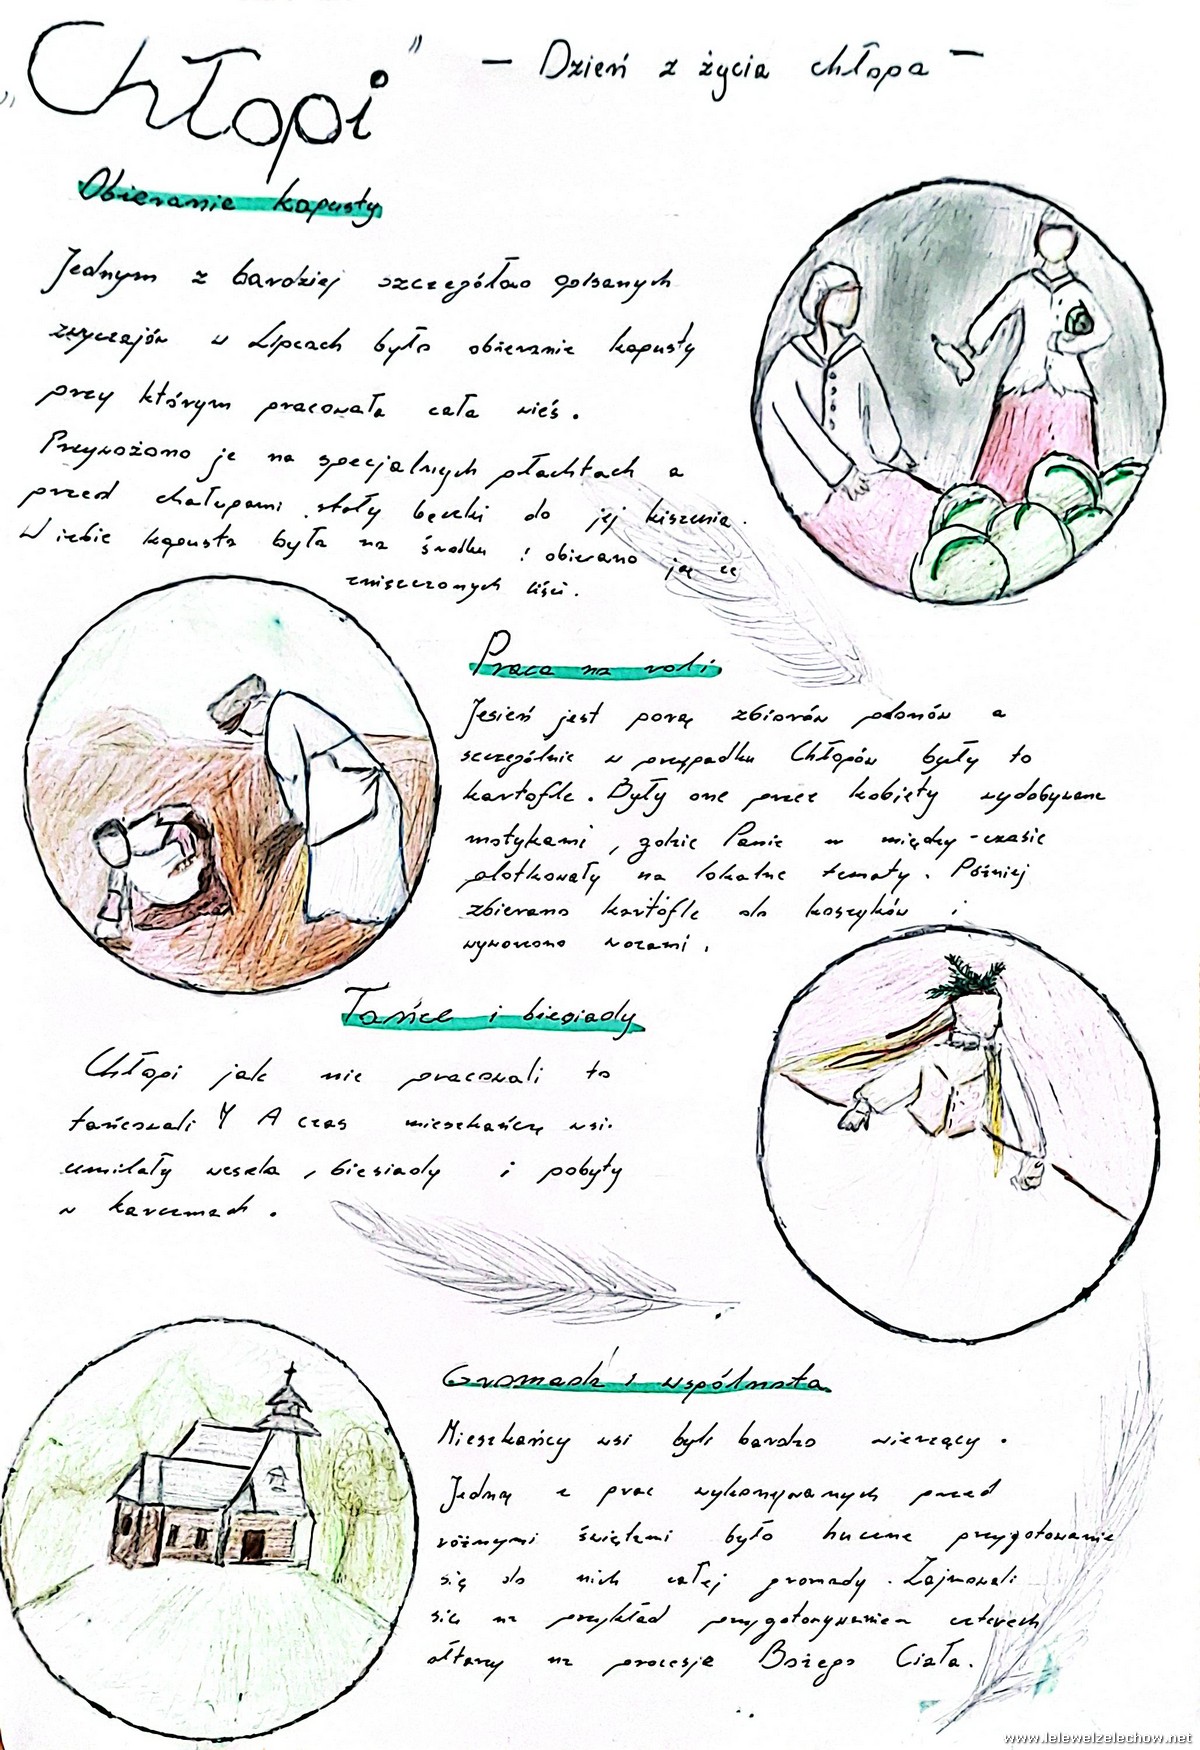 „Chłopi" - Dzień z życia chłopa -
Obieranie kapusty
Jednym z bardziej szczegółowo opisanych
zwyczajów w Lipcach było obieranie kapusty
przy którym pracowała cała wieś.
Przywożono je na specjalnych płachtach a
przed chałupami stały beczki do jej kiszenia.
W izbie kapusta była na środku i obierano ją ze
zniszczonych liści.
Praca na roli
Jesień jest porą zbiorów plonów a
szczególnie w przypadku Chłopów były to
kartofle. Były one przez kobiety wydobywane
motykami, gdzie Panie w między-czasie
plotkowały na lokalne tematy. Później
zbierano kartofle do koszyków i
wywożono wozami.
Tańce i biesiady
Chłopi jak nie pracowali to
tańcowali! A czas mieszkańcą wsi
umilały wesela, biesiady i pobyty
w karczmach.
Gromada i wspólnota
Mieszkańcy wsi byli bardzo wierzący.
Jedną z prac wykonywanych przed
różnymi świętami było huczne przygotowanie
się do nich całej gromady. Zajmowali
się na przykład przygotowywaniem czterech
ołtarzy na procesje Bożego Ciała.
www.lelewelzelechow.net